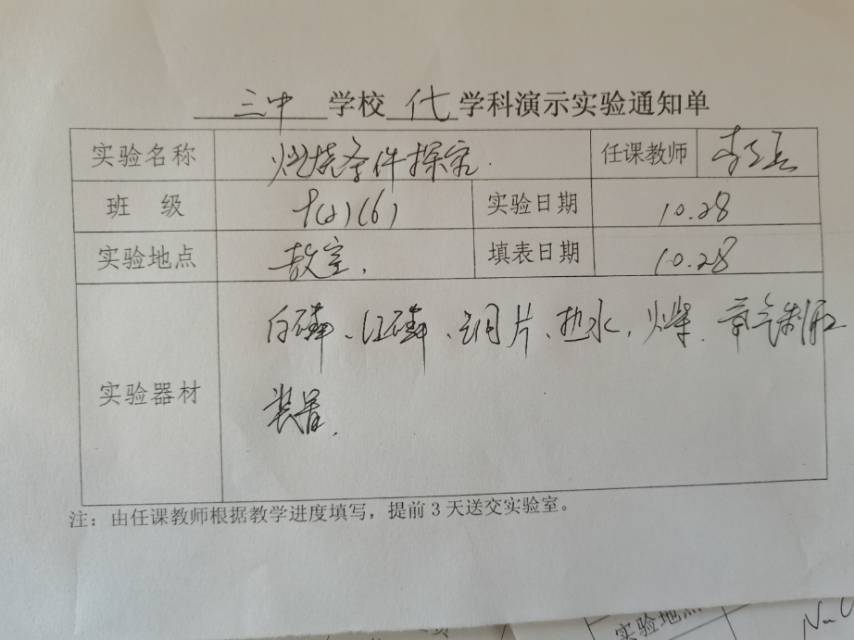 三中 学校 化 学科演示实验通知单
实验名称 燃烧条件探究. 任课教师
班 级 九(2)(6) 实验日期 10.28
实验地点 教室. 填表日期 10.28
白磷、红磷、铜片、热水, 火柴. 氧气制取
实验器材
装置.
注：由任课教师根据教学进度填写，提前3天送交实验室。
实验地点